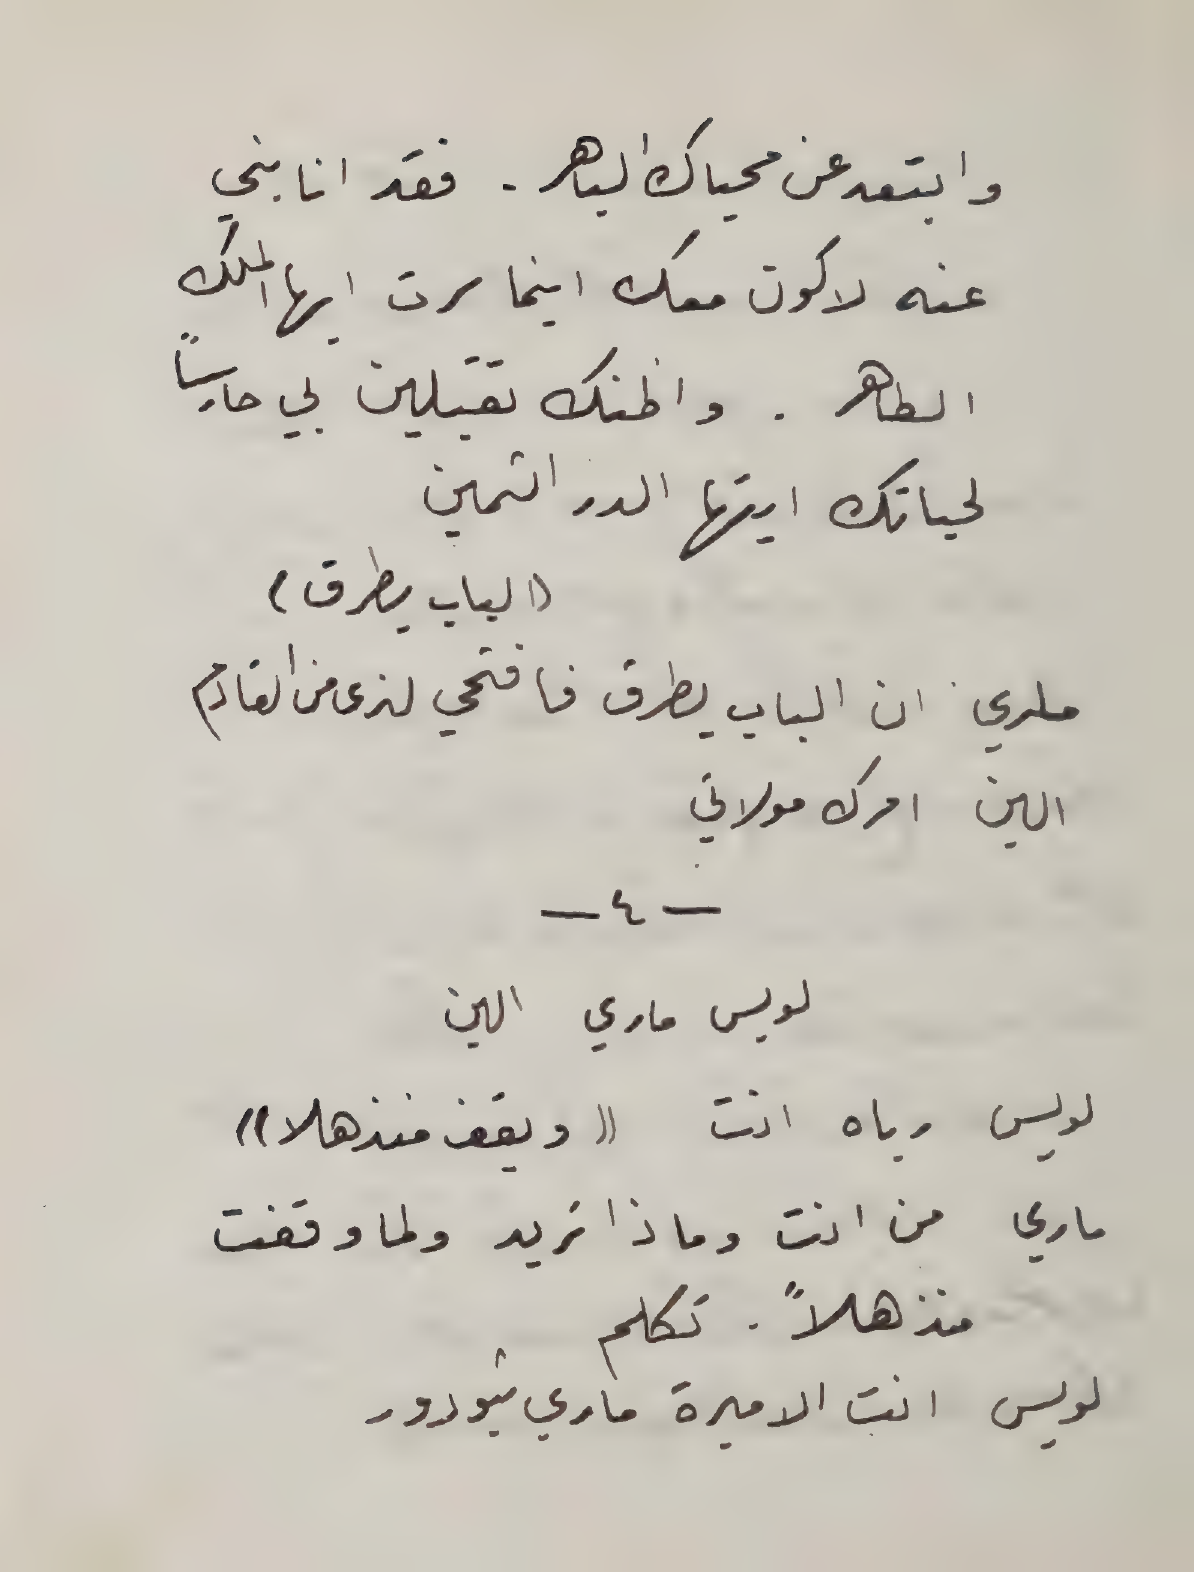 وابتعد عن محياك الباهر . فقد انابني
عنه لاكون معك اينما سرت ايها الملك
الطاهر . واظنك تقبلين بي حارساً
لحياتك ايتها الدر الثمين
(الباب يطرق)
ماري ان الباب يطرق فافتحي لنرى من القادم
الين امرك مولاتي
— ٤ —
لويس ماري الين
لويس رباه انت ((ويقف منذهلا))
ماري من انت وماذا تريد ولما وقفت
منذهلاً . تكلم
لويس انت الاميرة ماري تيودور